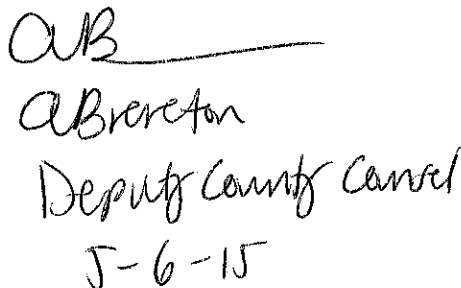 AB
ABrereton
Deputy County Counsel
5-6-15